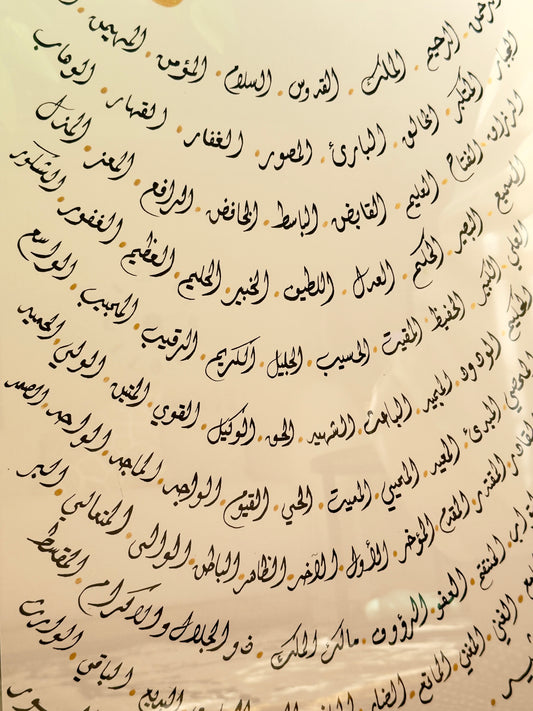 الرحمن الرحيم الملك القدوس السلام المؤمن المهيمن
الجبار المتكبر الخالق البارئ المصور الغفار القهار الوهاب
الرزاق الفتاح العليم القابض الباسط الخافض الرافع المعز المذل
السميع البصير الحكم العدل اللطيف الخبير الحليم العظيم الغفور الشكور
العلي الكبير الحفيظ المقيت الحسيب الجليل الكريم الرقيب المجيب الواسع
الحكيم الودود المجيد الباعث الشهيد الحق الوكيل القوي المتين الولي الحميد
المحصي المبدئ المعيد المحيي المميت الحي القيوم الواجد الماجد الواحد الصمد
القادر المقتدر المقدم المؤخر الأول الآخر الظاهر الباطن الوالي المتعالي البر
التواب المنتقم العفو الرؤوف مالك الملك ذو الجلال والاكرام المقسط
الغني المغني المانع الضار
البديع الباقي الوارث